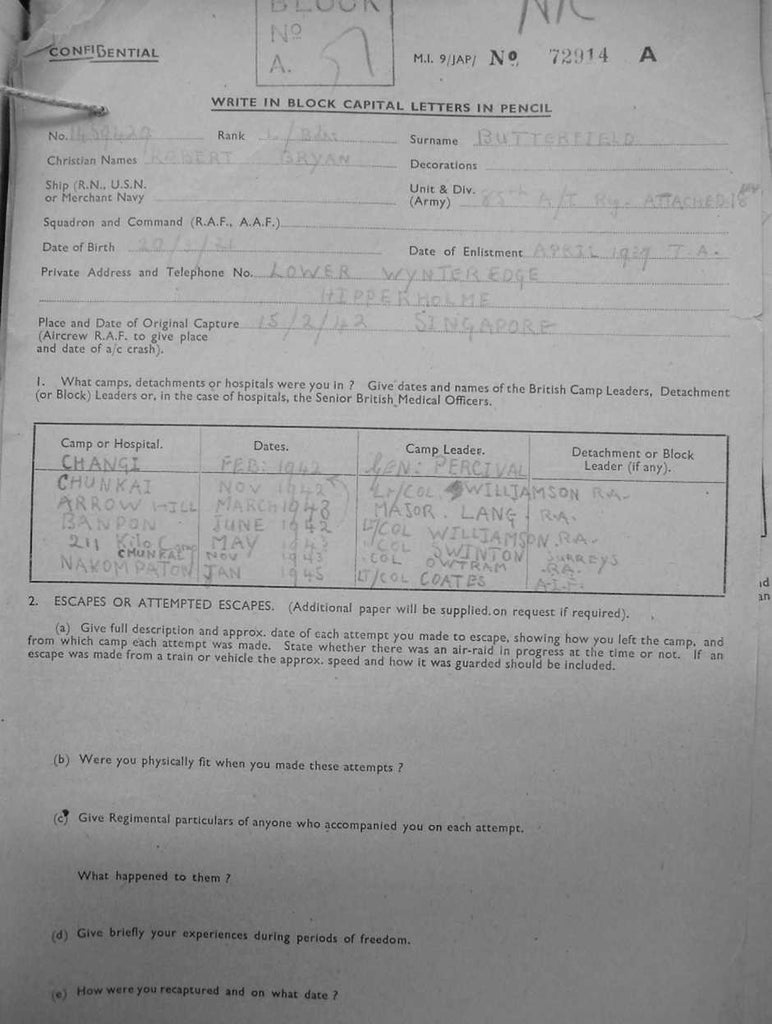 BLOCK
Nº
A.
CONFIDENTIAL
M.I. 9/JAP/ Nº 72914 A
WRITE IN BLOCK CAPITAL LETTERS IN PENCIL
No. Rank L/Bdr Surname BUTTERFIELD
Christian Names ROBERT BRYAN Decorations
Ship (R.N., U.S.N.
or Merchant Navy
Unit & Div.
(Army) 85th A/T Rg. ATTACHED 18
Squadron and Command (R.A.F., A.A.F.)
Date of Birth Date of Enlistment APRIL 1939 T.A.
Private Address and Telephone No. LOWER WYNTEREDGE
HIPPERHOLME
Place and Date of Original Capture 15/2/42 SINGAPORE
(Aircrew R.A.F. to give place
and date of a/c crash).
1. What camps, detachments or hospitals were you in ? Give dates and names of the British Camp Leaders, Detachment
(or Block) Leaders or, in the case of hospitals, the Senior British Medical Officers.
Camp or Hospital. Dates. Camp Leader. Detachment or Block
Leader (if any).
CHANGI FEB: 1942 GEN: PERCIVAL
CHUNKAI NOV 1942 Lt/COL WILLIAMSON R.A.
ARROW HILL MARCH 1943 MAJOR. LANG R.A.
BANPON JUNE 1942 Lt/COL WILLIAMSON R.A.
211 Kilo Camp MAY 1943 COL SWINTON SURREYS
CHUNKAI NOV 1943 COL OWTRAM R.A.
NAKOMPATON JAN 1945 LT/COL COATES A.I.F.
2. ESCAPES OR ATTEMPTED ESCAPES. (Additional paper will be supplied on request if required).
(a) Give full description and approx. date of each attempt you made to escape, showing how you left the camp, and
from which camp each attempt was made. State whether there was an air-raid in progress at the time or not. If an
escape was made from a train or vehicle the approx. speed and how it was guarded should be included.
(b) Were you physically fit when you made these attempts ?
(c) Give Regimental particulars of anyone who accompanied you on each attempt.
What happened to them ?
(d) Give briefly your experiences during periods of freedom.
(e) How were you recaptured and on what date ?